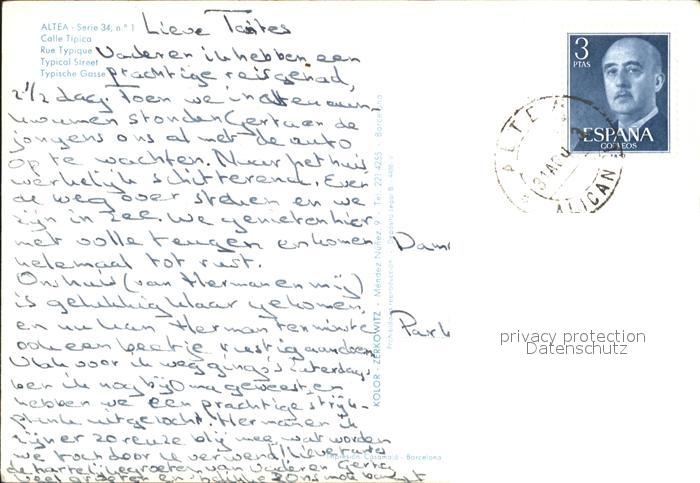 ALTEA - Serie 34, n.º 1
Calle Típica
Rue Typique
Typical Street
Typische Gasse
Lieve Tantes
Vader en ik hebben een
prachtige reis gehad,
2½ dag. Toen we in Altea aan-
kwamen stonden Gert en de
jongens ons al met de auto
op te wachten. Naar het huis
werkelijk schitterend. Even
de weg over steken en we
zijn in zee. We genieten hier
met volle teugen en komen
helemaal tot rust.
Ons huis (van Herman en mij)
is gelukkig klaar gekomen,
en nu kan Herman tenminste
ook een beetje rustig aandoen
Vlak voor ik wegging 's Zaterdags
ben ik nog bij Oma geweest en
hebben we een prachtige strijk-
plank uitgezocht. Herman en ik
zijn er zo reuze blij mee, wat worden
we toch door u verwend! Lieve tantes
de hartelijke groeten van Vader en Gert
veel groeten en
KOLOR - ZERKOWITZ - Méndez Núñez, 9 - Tel. 221 4255 - Barcelona
Prohibida la reproducción
Impresión Casamalá - Barcelona
3
PTAS
ESPAÑA
CORREOS
ALTEA
ALICAN
Dam
Park
privacy protection
Datenschutz